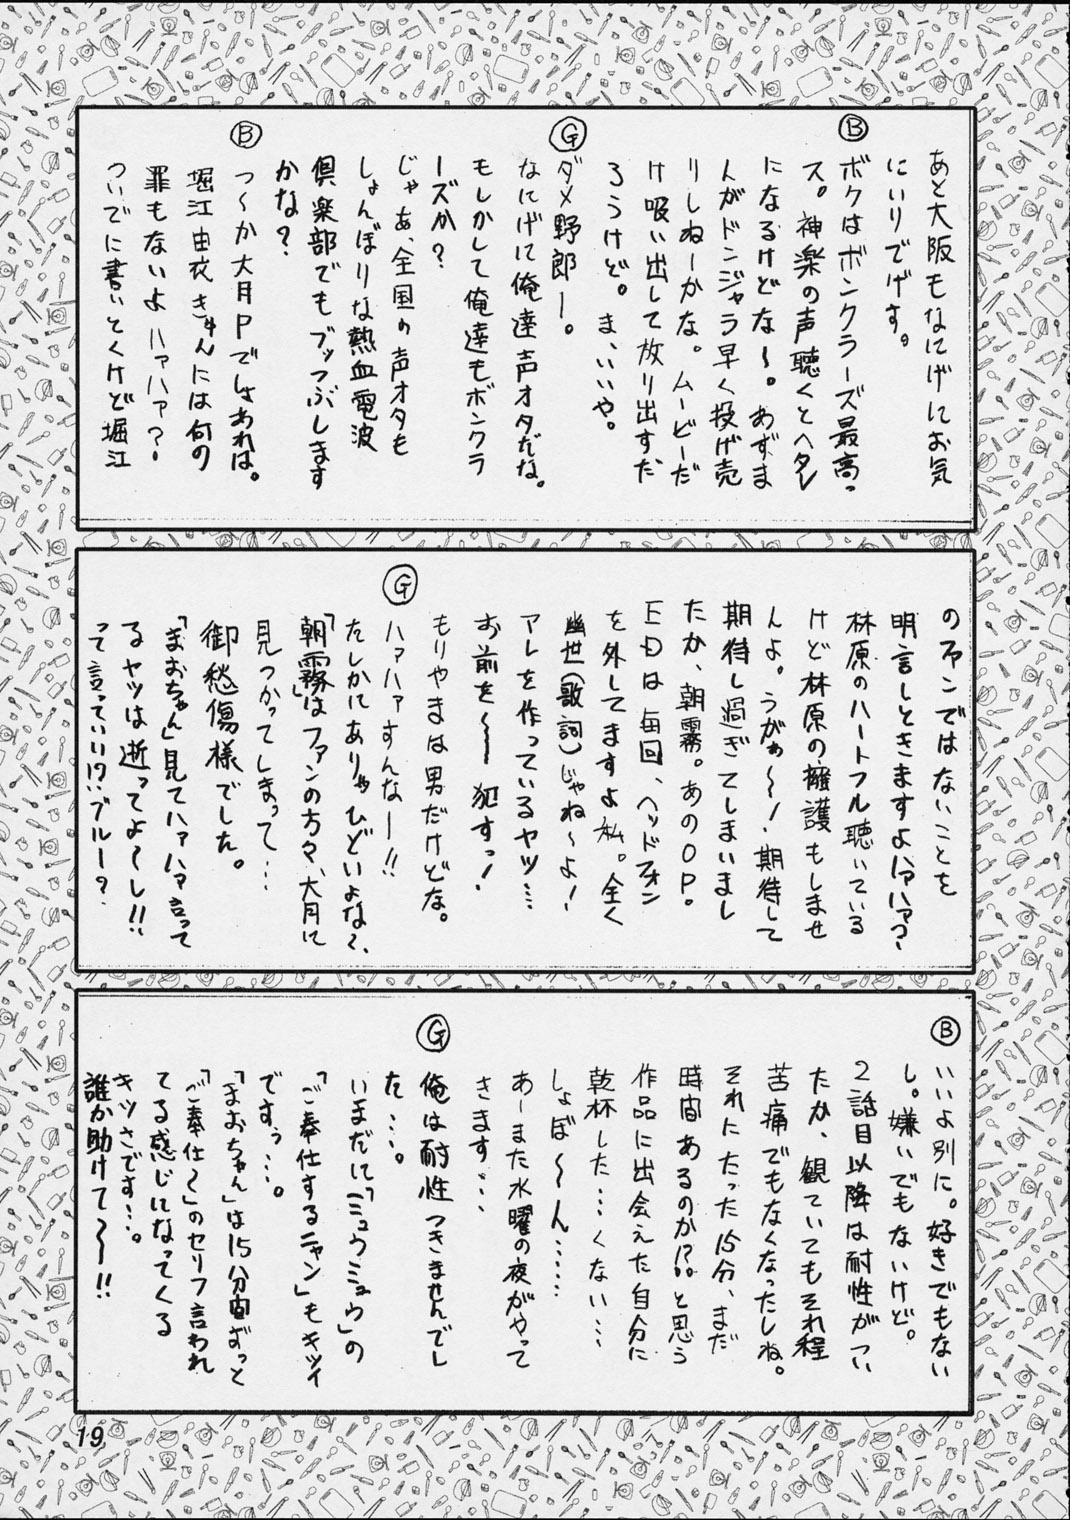 あと大阪もなにげにお気
にいりでげす。
Ⓑ
ボクはボンクラーズ最高っ
ス。神楽の声聴くとヘタレ
になるけどな〜。あずま
んがドンジャラ早く投げ売
りしねーかな。ムービーだ
け吸い出して放り出すだ
ろうけど。ま、いいや。
Ⓖ
ダメ野郎ー。
なにげに俺達声オタだな。
もしかして俺達もボンクラ
ーズか?
じゃあ、全国の声オタも
しょんぼりな熱血電波
倶楽部でもブッつぶします
かな?
Ⓑ
つ〜か大月Pでしょあれは。
堀江由衣きゅんには何の
罪もないよハァハァ?・
ついでに書いとくけど堀江
のファンではないことを
明言しときますよハァハァ?・
林原のハートフル聴いている
けど林原の擁護もしませ
んよ。うがぁ〜!・期待して
期待し過ぎてしまいまし
たか、朝霧。あのOP。
EDは毎回、ヘッドフォン
を外してますよ私。全く
幽世(歌詞)じゃね〜よ!
アレを作っているヤツ…
お前を〜〜犯すっ!
もりやまは男だけどな。
Ⓖ
ハァハァすんなー!!
たしかにありゃひどいよな〜、
「朝霧」はファンの方々、大月に
見つかってしまって…
御愁傷様でした。
「まおちゃん」見てハァハァ言って
るヤツは逝ってよ〜し!!
って言っていい!?ブルー?
Ⓑ
いいよ別に。好きでもない
し。嫌いでもないけど。
2話目以降は耐性がつい
たか、観ていてもそれ程
苦痛でもなくなったしね。
それにたった15分、まだ
時間あるのか!?と思う
作品に出会えた自分に
乾杯した…くない…
しょぼ〜〜ん……
あーまた水曜の夜がやって
きます…
Ⓖ
俺は耐性つきませんでし
た…。
いまだに「ミュウミュウ」の
「ご奉仕するニャン」もキツイ
ですぅ…。
「まおちゃん」は15分間ずっと
「ご奉仕〜」のセリフ言われ
てる感じになってくる
キツさです…。
誰か助けて〜〜!!
19